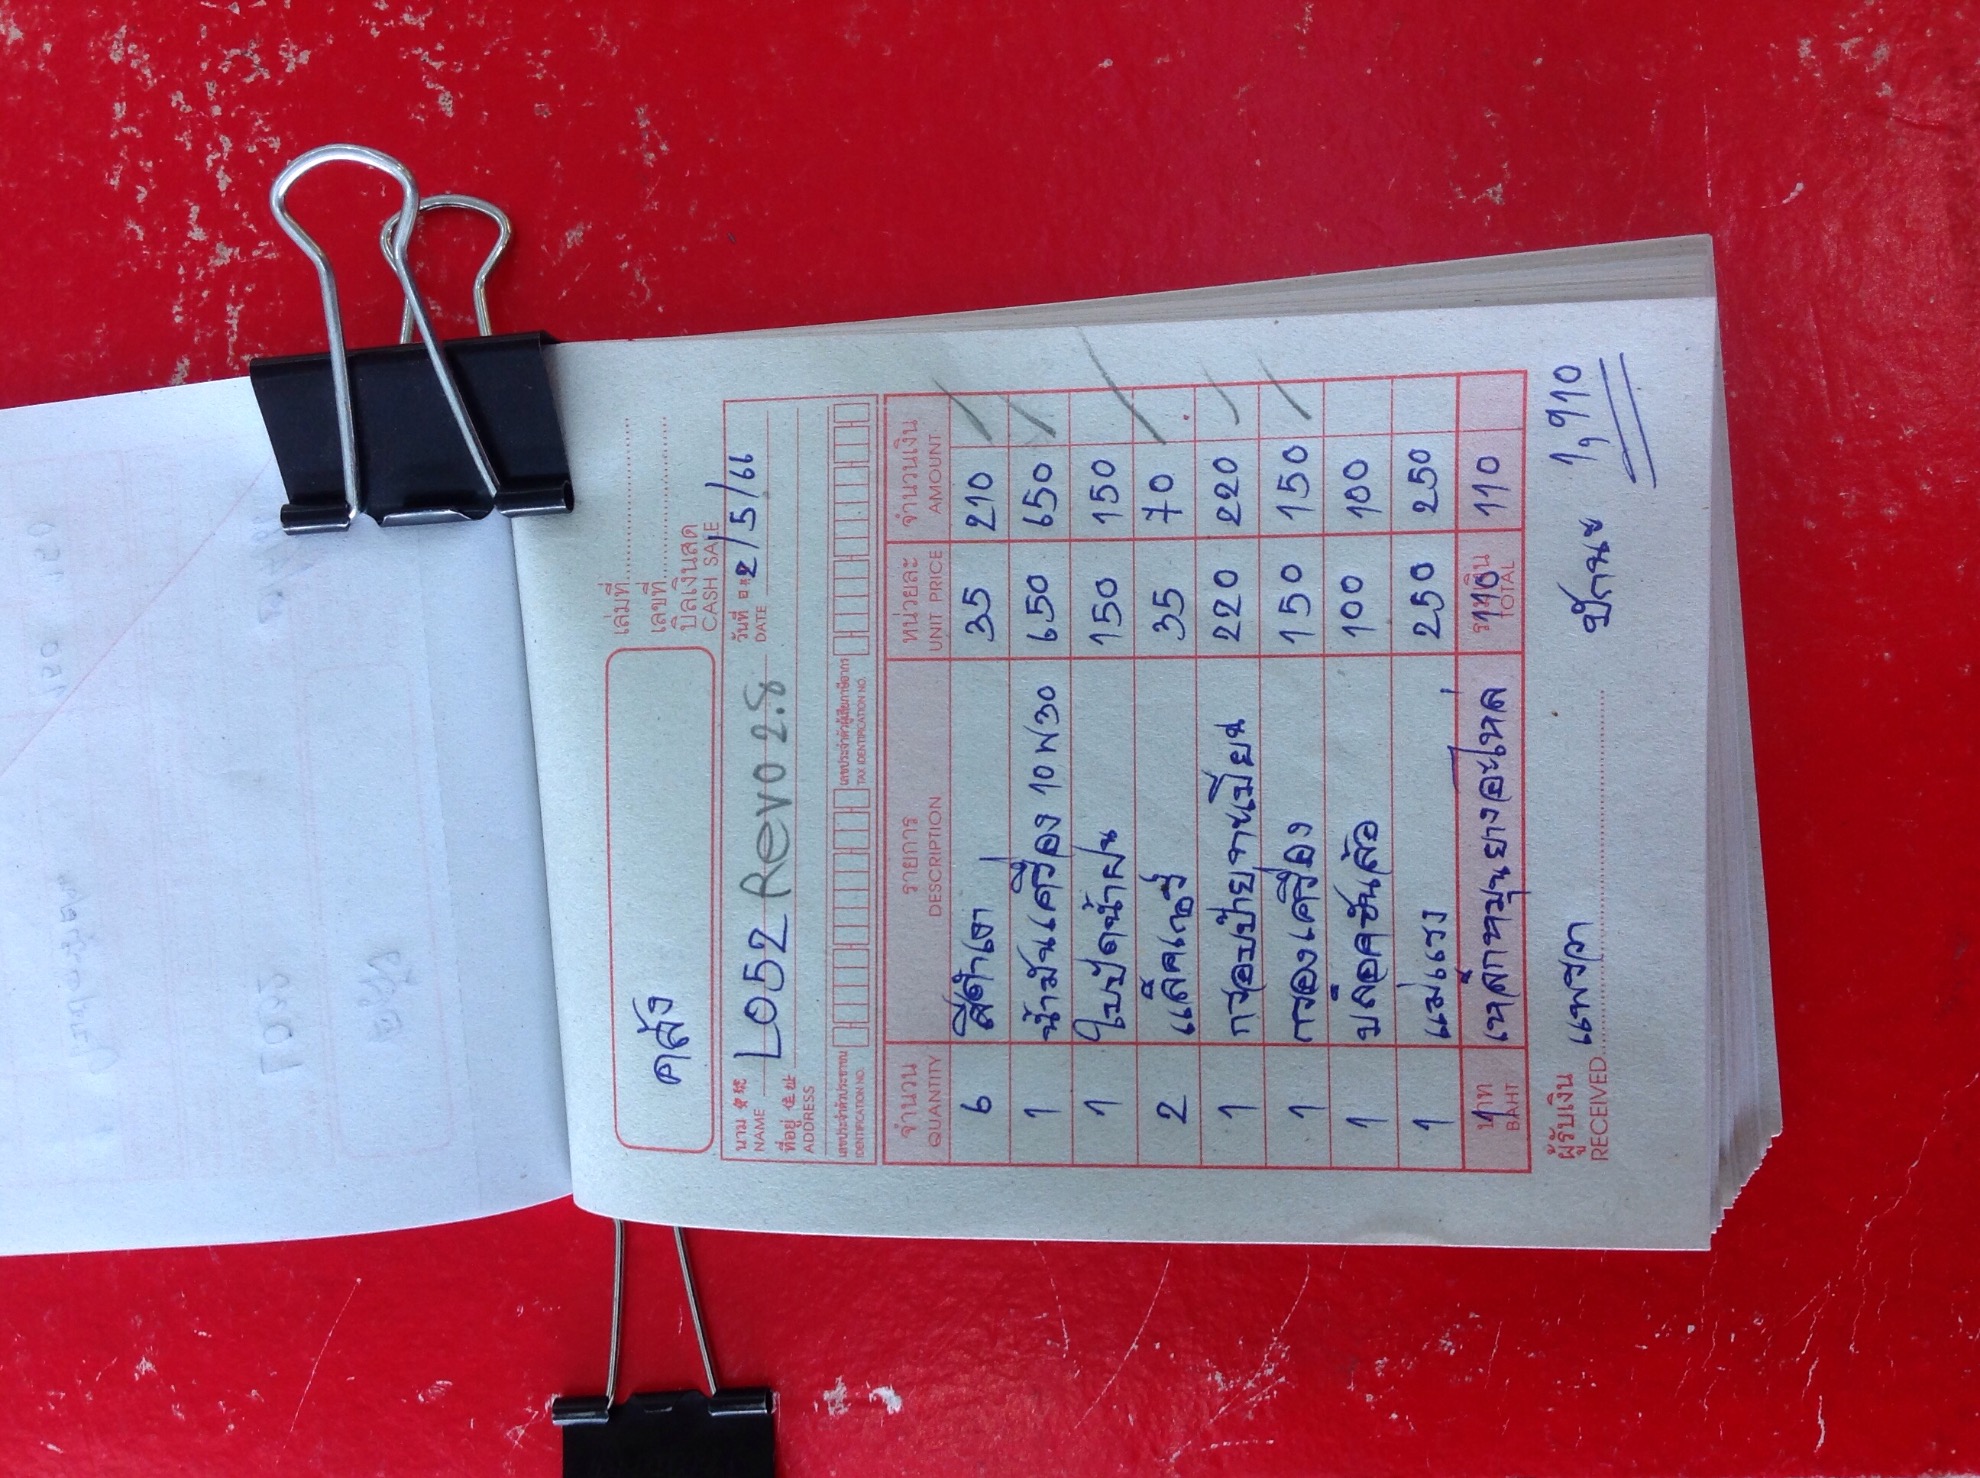 คลัง
เล่มที่
เลขที่
บิลเงินสด
CASH SALE
นาม
NAME L052 Revo 2.8
วันที่ 2/5/66
DATE
ที่อยู่
ADDRESS
เลขประจำตัวประชาชน เลขประจำตัวผู้เสียภาษีอากร
IDENTIFICATION NO. TAX IDENTIFICATION NO.
จำนวน รายการ หน่วยละ จำนวนเงิน
QUANTITY DESCRIPTION UNIT PRICE AMOUNT
6 สีดำเงา 35 210
1 น้ำมันเครื่อง 10W30 650 650
1 ใบปัดน้ำฝน 150 150
2 แล็คเกอร์ 35 70
1 220 220
1 กรองเครื่อง 150 150
1 บล๊อคขันล้อ 100 100
1 แม่แรง 250 250
1 เหล็กหมุนยางอะไหล่ 110 110
บาท รวมเงิน
BAHT TOTAL
ผู้รับเงิน แพรวา 1,910
RECEIVED